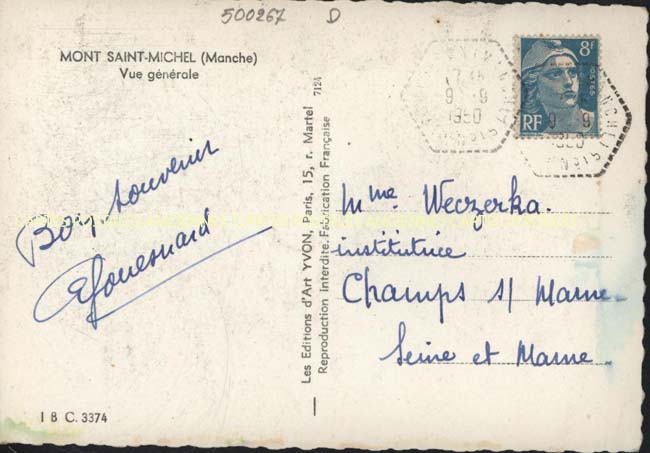 500267 D
MONT SAINT-MICHEL (Manche)
Vue générale
Bon souvenir
I B C. 3374
Les Editions d'Art YVON, Paris, 15, r. Martel
Reproduction Interdite. Fabrication Française
7124
8F
POSTES
RF
9 - 9
1950
9 - 9
1950
Mme Weczerka.
institutrice
Champs s/ Marne
Seine et Marne.